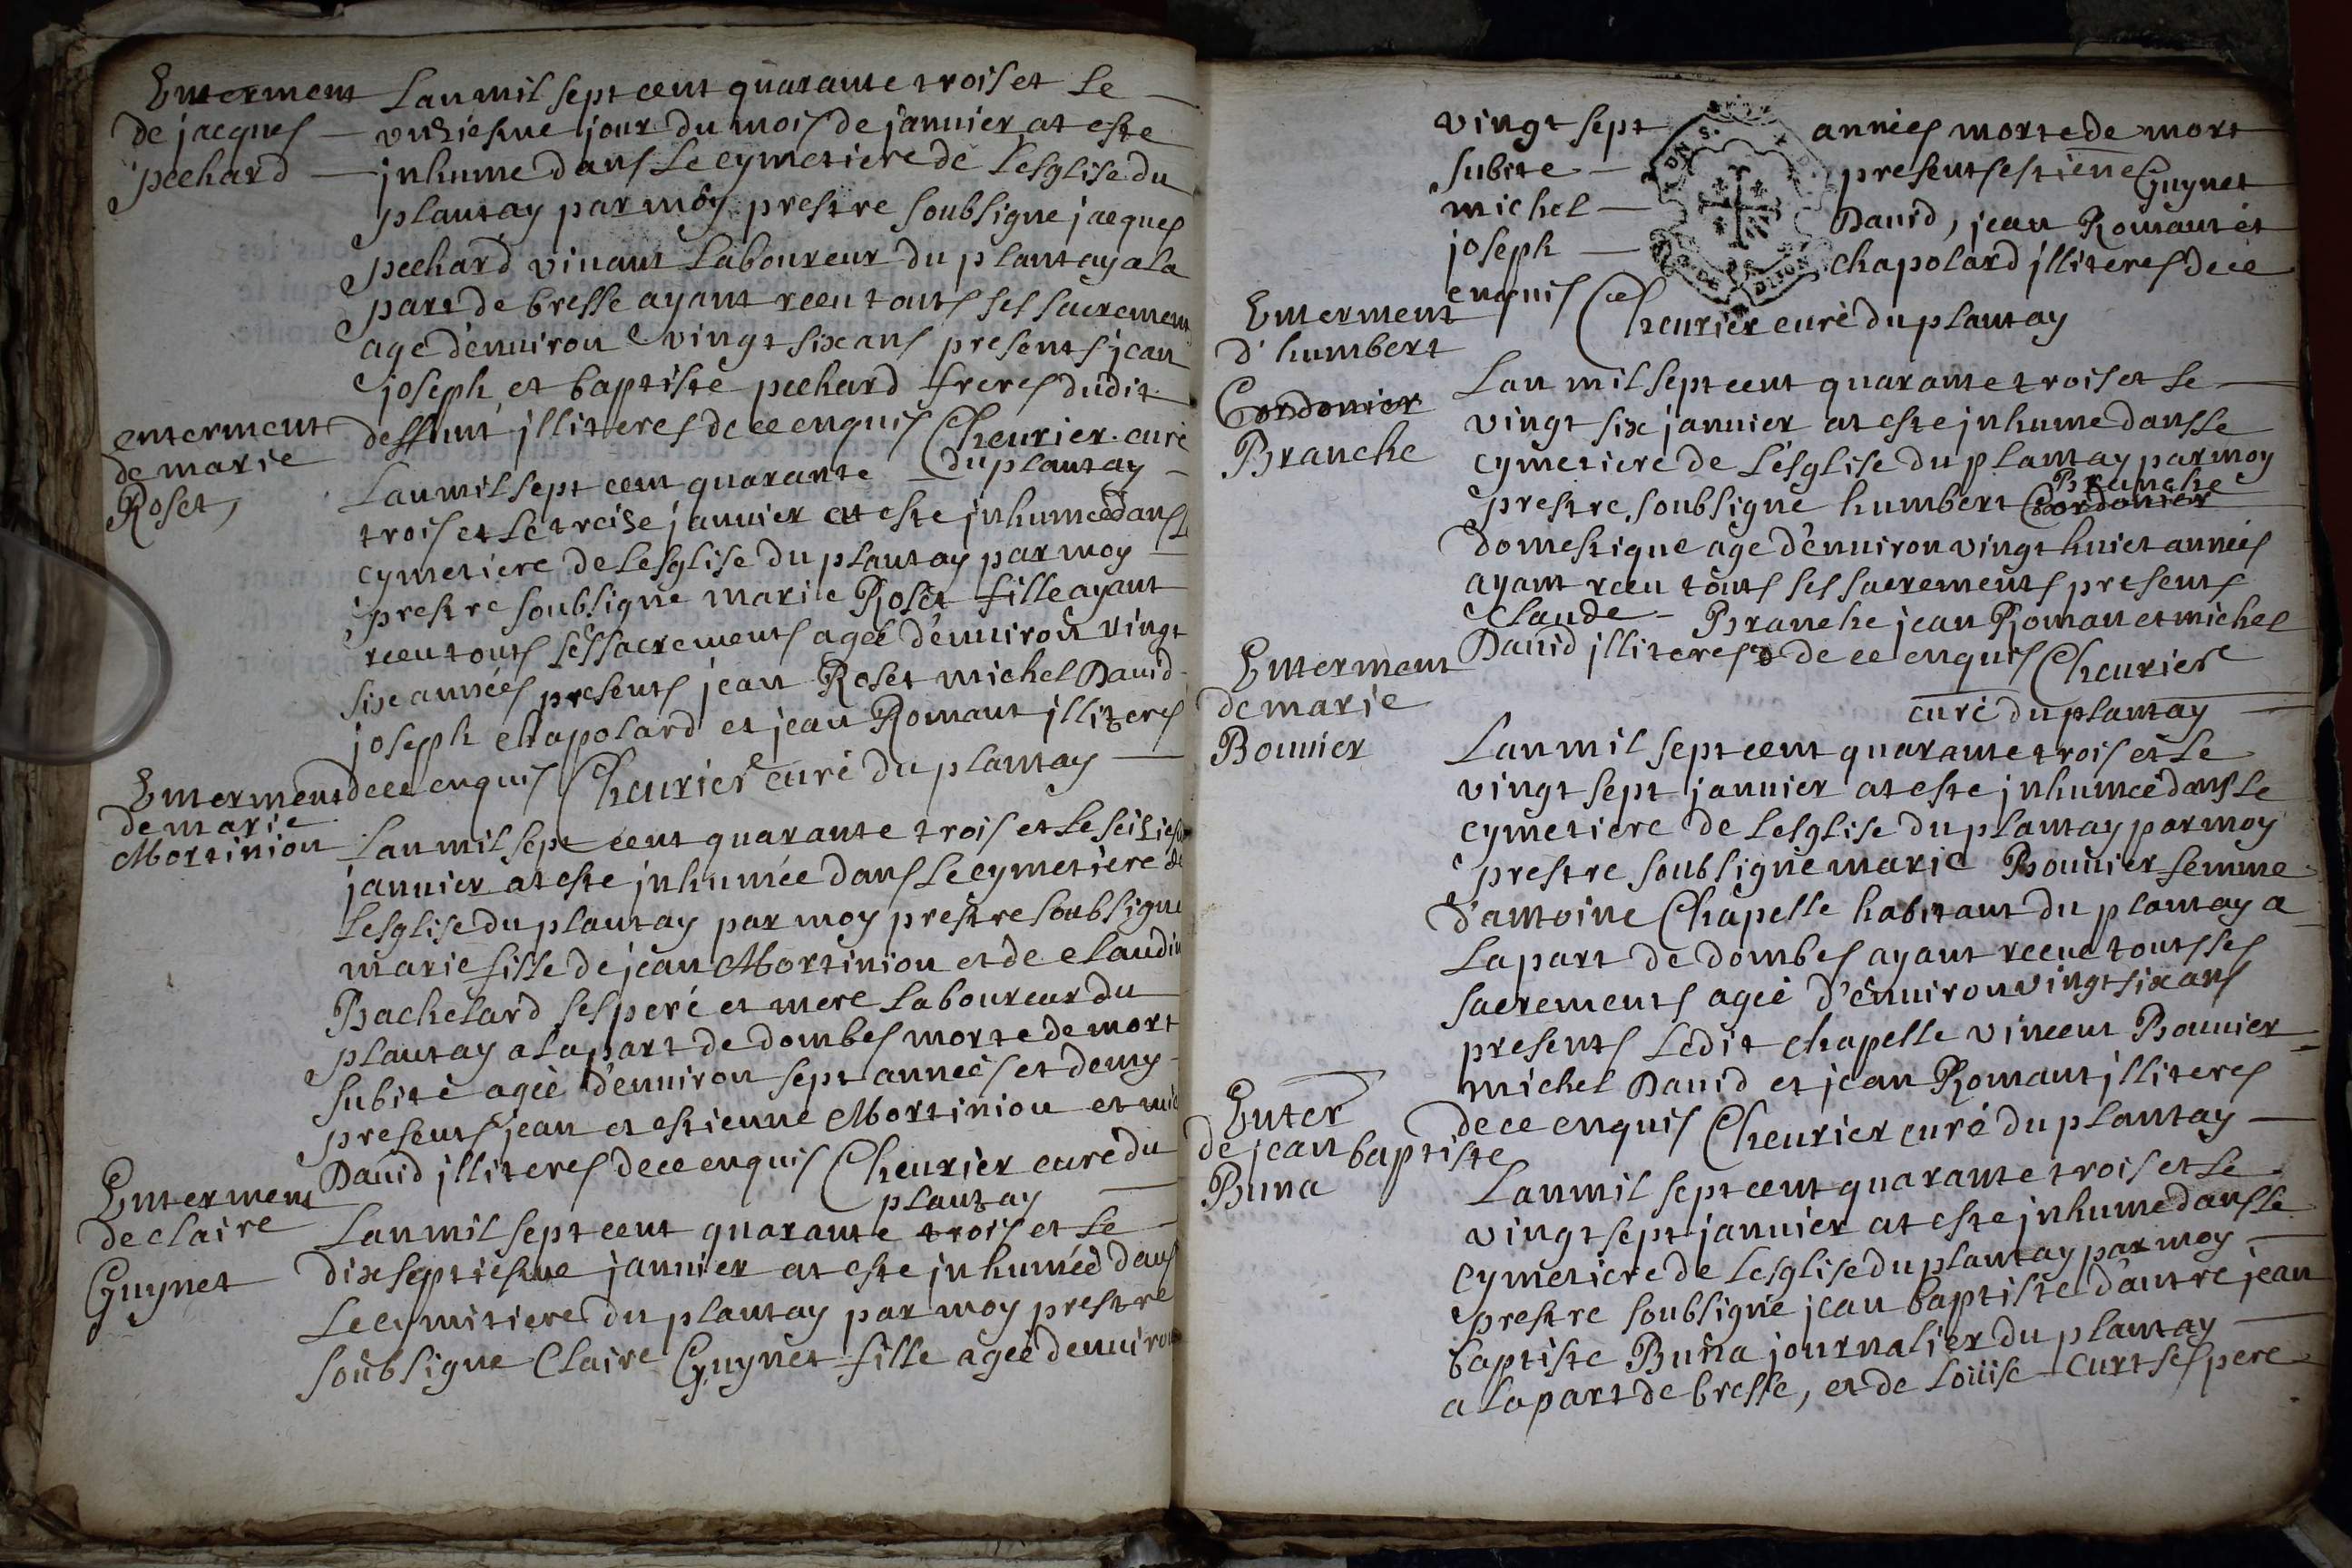 Enterment
de jacques
pechard
Lan mil sept cent quarante trois et le
unziesme jour du mois de janvier at este
inhume dans le cymetiere de Lesglise du
plantay par moy prestre soubsigne jacques
pechard vivant Laboureur du plantay a la
part de bresse ayant receu touts ses sacrement
age denviron vingt six ans presents jean
joseph et baptiste pechard freres dudit
deffunt illiteres de ce enquis Cheurier curé
du plantay
enterment
de marie
Roset,
Lan mil sept cent quarante
trois et le treize janvier at este inhumée dans Le
cymetiere de Lesglise du plantay par moy
prestre soubsigne marie Roset fille ayant
receu touts ses sacrements agée d'environ vingt
six années presents jean Roset michel David
joseph chapolard et jean Romant illiteres
de ce enquis Cheurier curé du plantay
Enterment
de marie
Mortinion
Lan mil sept cent quarante trois et le seiziesme
janvier at este inhumée dans le cymetiere de
Lesglise du plantay par moy prestre soubsigne
marie fille de jean Mortinion et de claudine
Bachelard ses peré et mere laboureur du
plantay a la part de dombes morte de mort
subite agée d'environ sept années et demy
presents jean et estienne Mortinion et mic
David illiteres de ce enquis Cheurier curé du
plantay
Enterment
de claire
Guynet
Lan mil sept cent quarante trois et le
dixseptiesme janvier at este inhumée dans
le cymitiere du plantay par moy prestre
soubsigne Claire Guynet fille agée denviron
vingt sept années morte de mort
subite presents estiene Guynet
michel David, jean Romant et
joseph chapolard illiteres de ce
enquis Cheurier curé du plantay
Enterment
d'humbert
Cordonier
Branche
Lan mil sept cent quarante trois et le
vingt six janvier at este inhume dans le
cymetiere de Lésglise du plantay par moy
Branche
prestre soubsigné humbert Cordonier
domestique age d'environ vingt huict années
ayant receu touts ses sacrements presents
Claude Branche jean Roman et michel
David illiteres de ce enquis Cheurier
curé du plantay
Enterment
de marie
Bouvier
Lan mil sept cent quarante trois et le
vingt sept janvier at este inhumée dans le
cymetiere de Lesglise du plantay par moy
prestre soubsigné marie Bouvier femme
d'antoine Chapelle habitant du plantay a
la part de dombes ayant receue touts ses
sacrements agée d'environ vingt six ans
presents Ledit chapelle vincent Bouvier
michel David et jean Romant illiteres
de ce enquis Cheurier curé du plantay
Enter
de jean baptiste
Buna
Lan mil sept cent quarante trois et le
vingt sept janvier at este inhume dans le
cymetiere de Lesglise du plantay par moy
prestre soubsigné jean baptiste d'autre jean
baptiste Buna journalier du plantay
a la part de bresse, et de Loüise Curt ses pere